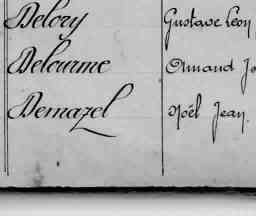 Delory Gustave Léon
Delourme Amand Jo
Demazel Noël Jean.